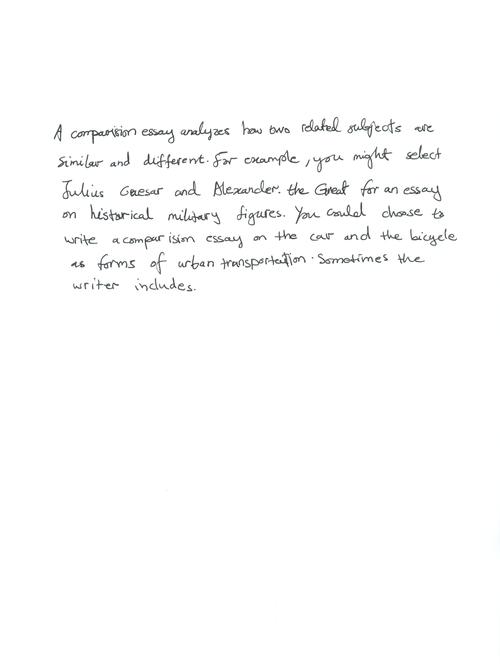 A comparision essay analyzes how two related subjects are
similar and different. For example, you might select
Julius Caesar and Alexander. the Great for an essay
on historical military figures. You could choose to
write a comparision essay on the car and the bicycle
as forms of urban transportation. Sometimes the
writer includes.